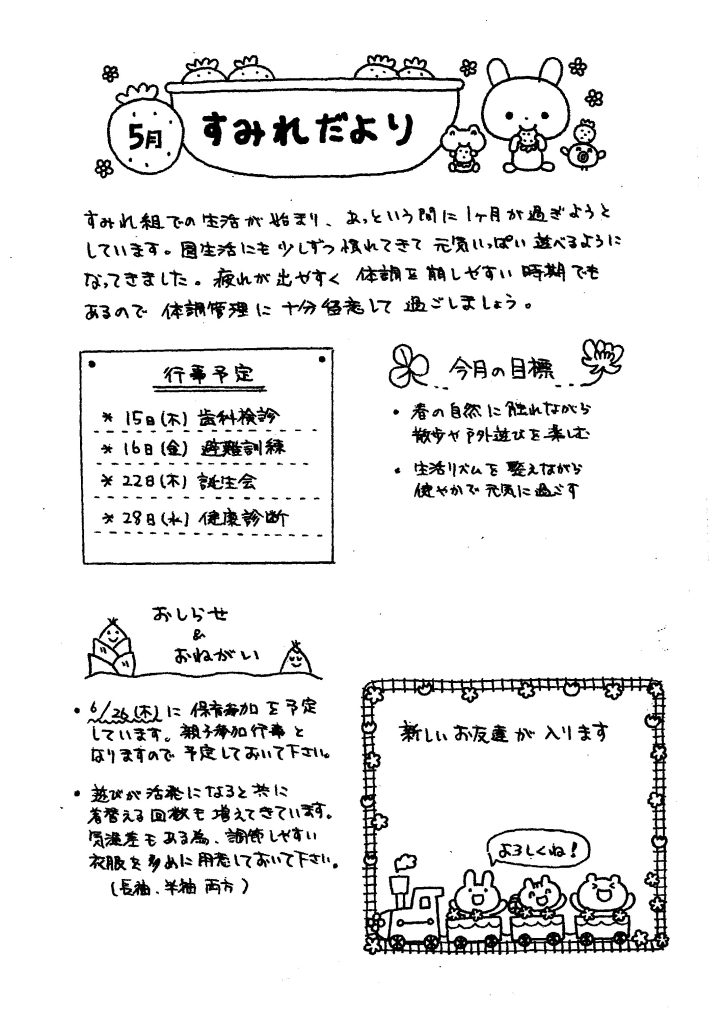 5月
すみれだより
すみれ組での生活が始まり、あっという間に1ヶ月が過ぎようと
しています。園生活にも少しずつ慣れてきて元気いっぱい遊べるように
なってきました。疲れが出やすく体調を崩しやすい時期でも
あるので体調管理に十分留意して過ごしましょう。
行事予定
* 15日(木) 歯科検診
* 16日(金) 避難訓練
* 22日(木) 誕生会
* 28日(水) 健康診断
今月の目標
・春の自然に触れながら
散歩や戸外遊びを楽しむ
・生活リズムを整えながら
健やかで元気に過ごす
おしらせ
&
おねがい
・6/26(木)に保育参加を予定
しています。親子参加行事と
なりますので予定しておいて下さい。
・遊びが活発になると共に
着替える回数も増えてきています。
気温差もある為、調節しやすい
衣服を多めに用意しておいて下さい。
(長袖、半袖両方)
新しいお友達が入ります
よろしくね!